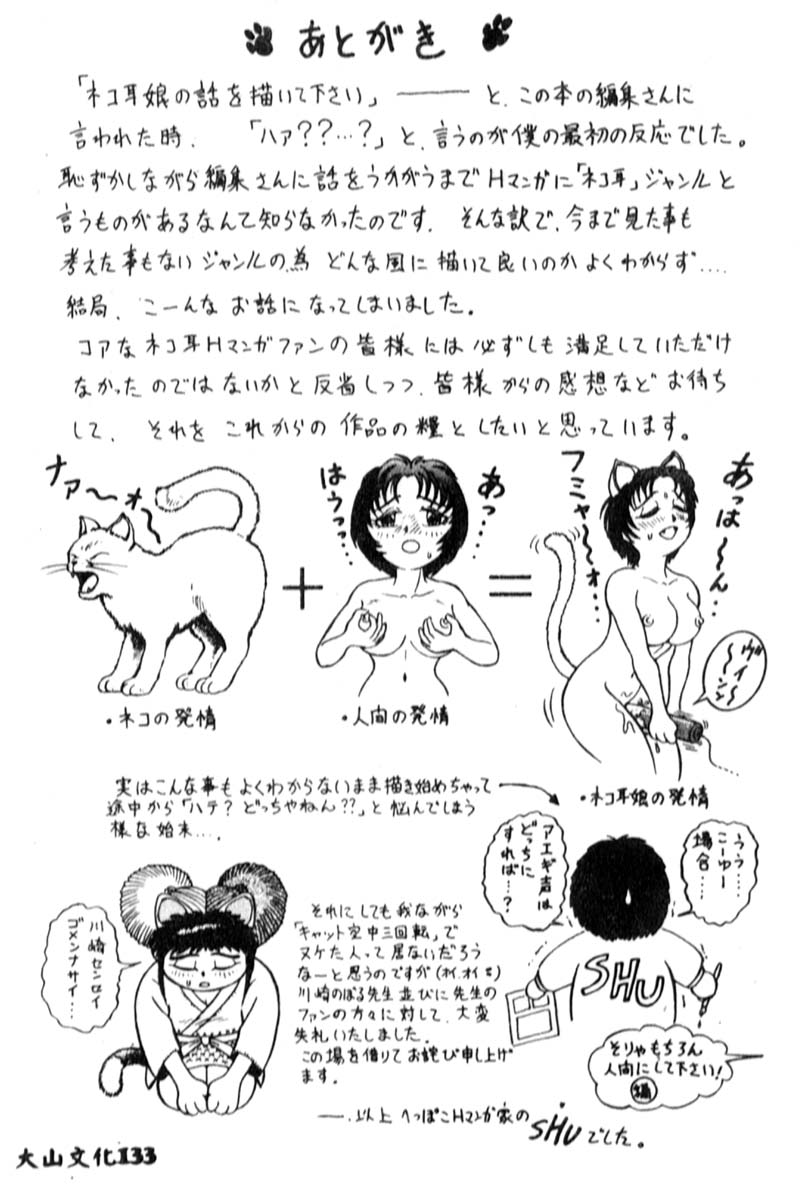 あとがき
「ネコ耳娘の話を描いて下さい」――― と、この本の編集さんに
言われた時、 「ハァ??…?」と、言うのが僕の最初の反応でした。
恥ずかしながら編集さんに話をうかがうまでHマンガに「ネコ耳」ジャンルと
言うものがあるなんて知らなかったのです。 そんな訳で、今まで見た事も
考えた事もない ジャンルの為 どんな風に描いて良いのか よくわからず‥‥
結局、 こーんな お話になってしまいました。
コアなネコ耳Hマンガファンの皆様には 必ずしも 満足していただけ
なかったのではないかと反省しつつ、皆様からの感想などお待ち
して、 それを これからの 作品の糧としたいと思っています。
ナァ〜ォ〜
はうっっ‥‥
あっ‥‥
フミャ〜〜ォ‥‥
あっは〜〜ん‥‥
ヴイ〜〜〜ンン
+
=
・ネコの発情
・人間の発情
・ネコ耳娘の発情
実はこんな事もよくわからないまま描き始めちゃって
途中から「ハテ? どっちやねん??」と悩んでしまう
様な始末‥‥。
うう‥‥
こーゆー
場合‥‥
アエギ声は
どっちに
すれば‥‥?
SHU
そりゃもちろん
人間にして下さい!
編
川崎センセイ
ゴメンナサイ‥‥
それにしても我ながら
「キャット空中三回転」で
ヌケた人って居ないだろう
なーと思うのですが(オイ、オイミ)
川崎のぼる先生並びに先生の
ファンの方々に対して、大変
失礼いたしました。
この場を借りてお詫び申し上げ
ます。
――.以上 へっぽこHマンガ家の SHUでした。
大山文化133